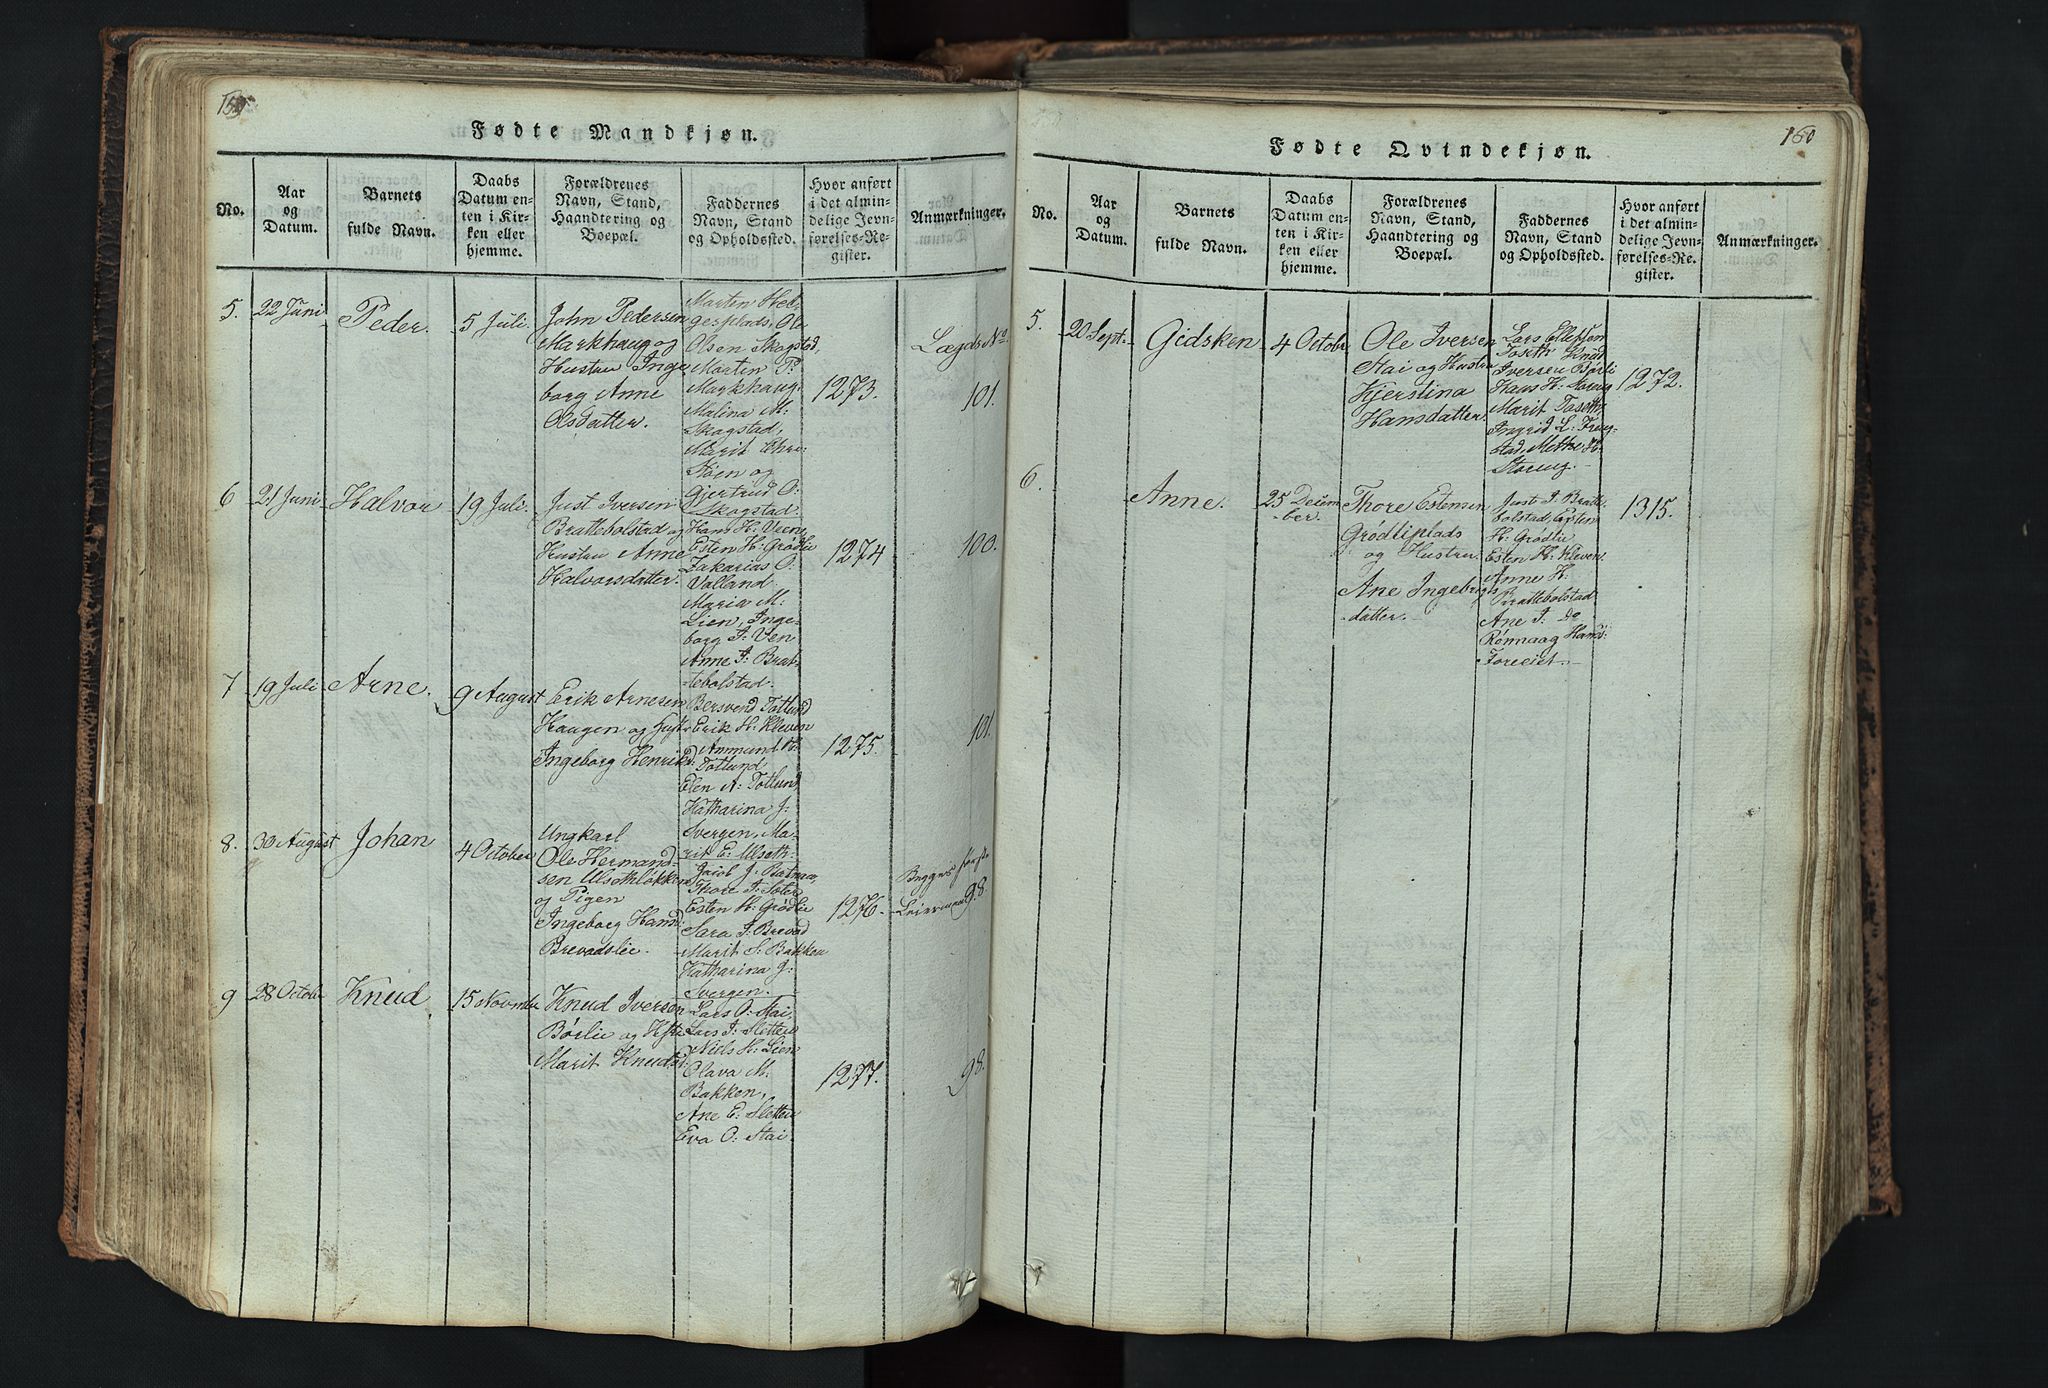 159
Fødte Mandkjøn.
No.
Aar
og
Datum.
Barnets
fulde Navn.
Daabs
Datum en-
ten i Kir-
ken eller
hjemme.
Forældrenes
Navn, Stand,
Haandtering og
Boepæl.
Faddernes
Navn, Stand
og Opholdssted.
Hvor anført
i det almin-
delige Jevn-
førelses-Re-
gister.
Anmærkninger.
5.
22 Juni
Peder.
5 Juli.
John Pedersen
Markhaug og
Hustru Inge
borg Anne
Olsdatter.
Morten Hel-
gesplads, Ola
Olsen Skogstad,
Morten P:
Markhaug,
Malina M:
Skogstad,
Marit Chri-
støen og
Gjertrud O:
Skogstad.
1273.
Lægds No.
101.
6
21 Juni
Halvor
19 Juli.
Just Iversen
Brattebolstad og
Hustru Anne
Halvorsdatter.
Hans H: Vreng
Esten H: Grødlie
Zakarias O:
Valland
Maria M:
Lien, Inge-
borg I: Ven
Anne I: Brat-
tebolstad.
1274
100.
7
19 Juli
Arne.
9 August
Erik Arnesen
Haugen og Hust
Ingeborg Henriksd:
Bersvend Totlund
Erik H: Kleven
Anmund
Totlund
Elen A: Totlund,
Katharina J:
Svergen, Ma-
rit E: Ulseth.
1275.
101.
8.
30 August
Johan
4 October
Ungkarl
Ole Hermand-
sen Ulsethløkken
og Pigen
Ingeborg Hansd:
Brevadslie.
Jacob J: Batman,
Thore I:
Esten H: Grødlie
Sara I: Brevad
Marit S: Bakken
Katharina J:
Svergen.
1276.
Begges første
Leiermaal
98.
9
28 October
Knud
15 Novmbr
Knud Iversen
Børlie og Hstr
Marit Knudsd:
Lars O: Stai,
Lars I: Sletten
Niels H: Lien
Olava M:
Bakken,
Ane E: Sletten
Eva O: Stai.
1277.
98.
160
Fødte Qvindekjøn.
No.
Aar
og
Datum.
Barnets
fulde Navn.
Daabs
Datum en-
ten i Kir-
ken eller
hjemme.
Forældrenes
Navn, Stand,
Haandtering og
Boepæl.
Faddernes
Navn, Stand
og Opholdssted.
Hvor anført
i det almin-
delige Jevn-
førelses-Re-
gister.
Anmærkninger.
5.
20 Sept.
Gidsken
4 October
Ole Iversen
Stai og Hustru
Kjerstina
Hansdatter.
Lars Ellefsen
Toseth Knud
Iversen Børli
Hans H: Storug
Marit Toseth,
Ingrid L:
stad, Mette H:
Storug.
1272.
6.
Anne.
25 Decem
-ber.
Thore Estensen
Grødliplads
og Hustru
Ane Ingebrigts
datter.
Just I: Bratte
bolstad, Esten
H: Grødlie
Esten H: Kleven.
Anne H:
Brattebolstad
Ane I: do
Rønnaag Hansd:
Foreeiet.
1315.